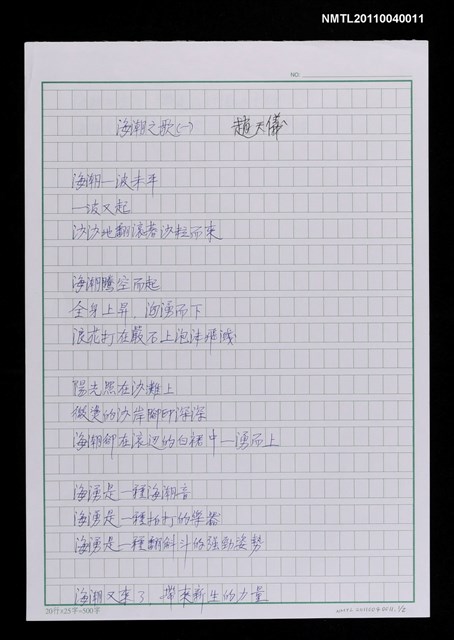 NMTL20110040011
NO:
海潮之歌(一) 趙天儀
海潮一波未平
一波又起
沙沙地翻滾著沙粒而來
海潮騰空而起
全身上昇,洶湧而下
浪花打在巖石上泡沫飛濺
陽光照在沙灘上
微燙的沙岸腳印深深
海潮卻在滾邊的白裙中一湧而上
海湧是一種海潮音
海湧是一種拍打的樂器
海湧是一種翻斜斗的強勁姿勢
海潮又來了,帶來新生的力量
20行×25字=500字
NMTL20110040011, 1/2